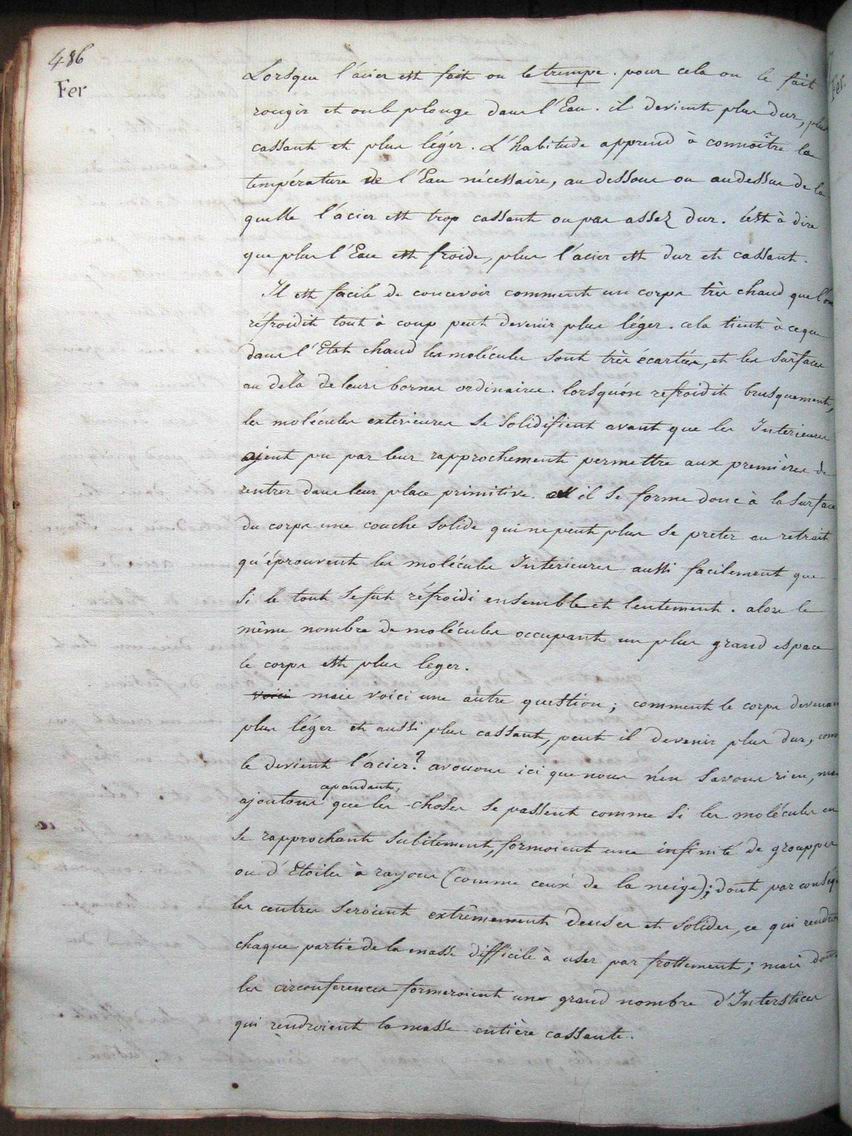 486
Fer
Fer.
Lorsque l'acier est fait on le trempe. pour cela on le fait
rougir et on le plonge dans l'Eau. il devient plus dur, plus
cassant et plus léger. L'habitude apprend à connoître la
température de l'Eau nécessaire, au dessous ou au dessus de la
quelle l'acier est trop cassant ou pas assez dur. c'est à dire
que plus l'Eau est froide, plus l'acier est dur et cassant.
Il est facile de concevoir comment un corps très chaud que l'on
réfroidit tout à coup peut devenir plus léger. cela tient à ce que
dans l'Etat chaud les molécules sont très écartées, et les surfaces
au delà de leurs bornes ordinaires. lorsqu'on refroidit brusquement,
les molécules exterieures se solidifient avant que les Interieures
ajent pu par leur rapprochement permettre aux premières de
rentrer dans leur place primitive. il se forme donc à la surface
du corps une couche solide qui ne peut plus se preter au retrait
qu'éprouvent les molécules Interieures aussi facilement que
si le tout se fut réfroidi ensemble et lentement. alors le
même nombre de molécules occupant un plus grand espace
le corps est plus leger.
voici mais voici une autre question; comment le corps devenant
plus léger et aussi plus cassant, peut il devenir plus dur, com
le devient l'acier? avouons ici que nous n'en savons rien, mais
ajoutons cependant, que les choses se passent comme si les molécules en
se rapprochant subitement, formoient une infinité de grouppes
ou d'Etoiles à rayons (comme ceux de la neige); dont par conség
les centres seroient extrêmement denses et solides, ce qui rendroit
chaque partie de la masse difficile à user par frottement; mais dont
les circonferences formeroient un grand nombre d'Interstices
qui rendroient la masse entière cassante.